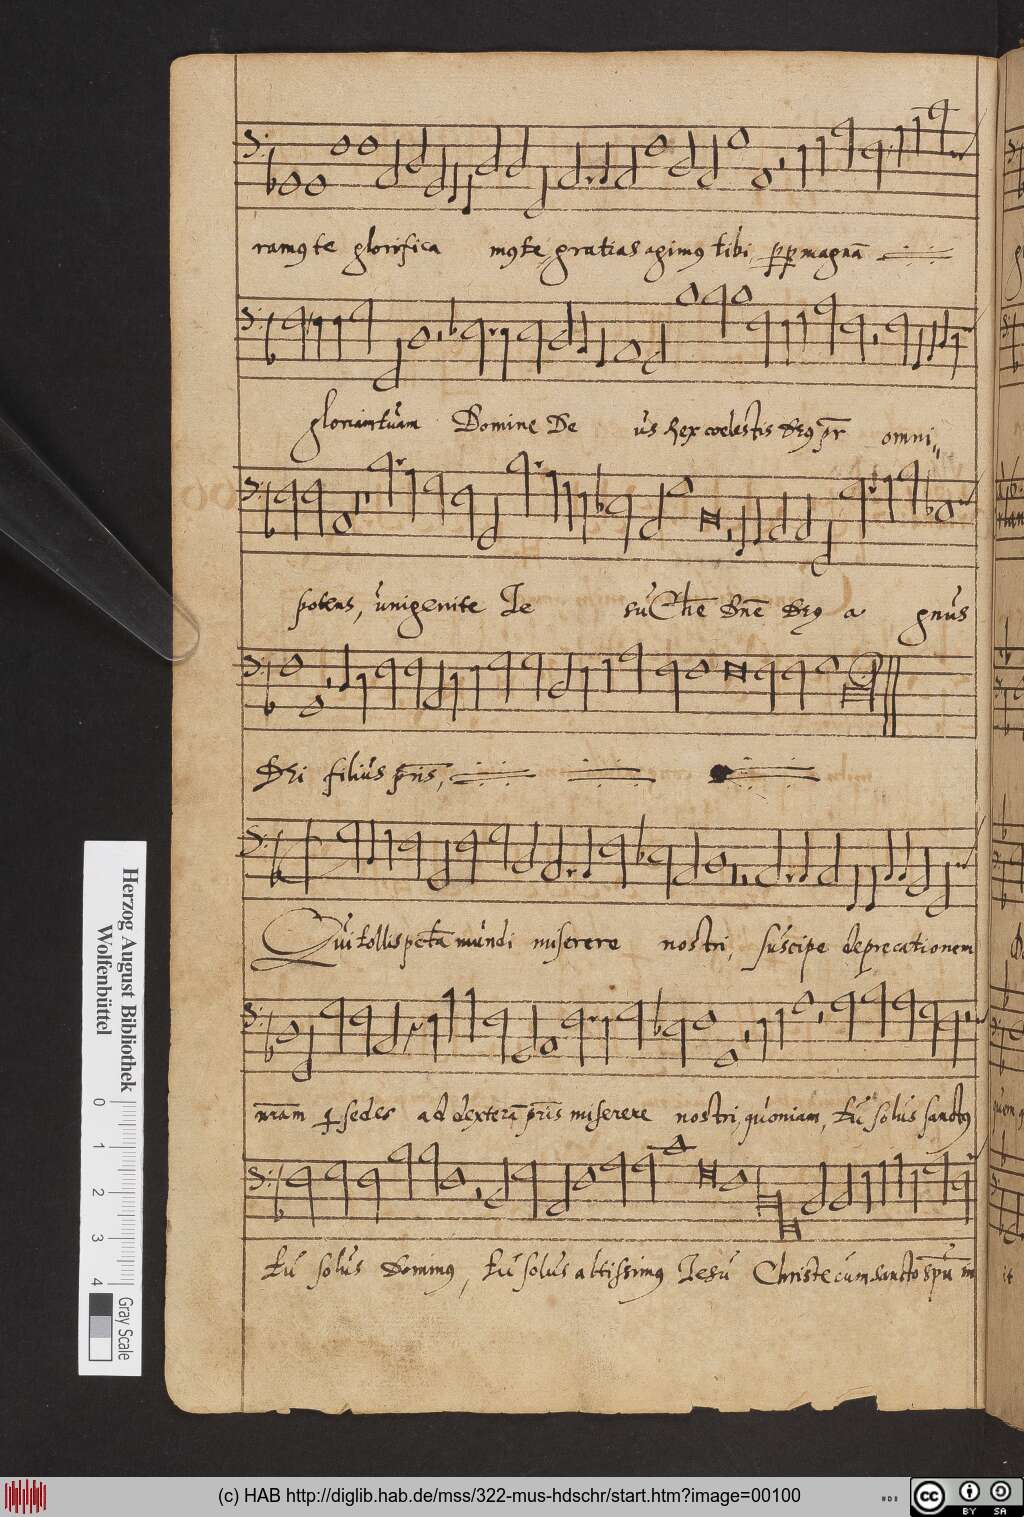 ramꝰ te glorifica mꝰ te, gratias agimꝰ tibi pp magnā
gloriam tuam Domine De us Rex coelestis Deꝰ pr̄ omni
potens, unigenite Ie su Chē Dnē Deꝰ a gnus
Dei filius pr̄is,
Qui tollis pctā mundi miserere nostri, suscipe deprecationem
nr̄am q sedes ad dexterā pr̄is miserere nostri, quoniam, tu solus sanctꝰ
tu solus Dominꝰ, tu solus altissimꝰ Iesu Christe cum sancto spū in
it
Herzog August Bibliothek
Wolfenbüttel
0 1 2 3 4
Gray Scale
(c) HAB http://diglib.hab.de/mss/322-mus-hdschr/start.htm?image=00100
cc BY SA